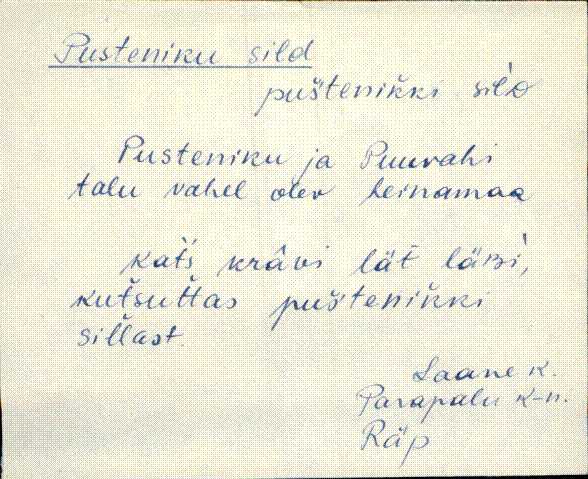 Pusteniku sild
puštenikki silD
Pusteniku ja Puurahi
talu vahel olev heinamaa
kat́s krāvi lät́ läBi,
kut́sut́tas puštenikki
sillast.
Laane k.
Parapalu k-n.
Räp